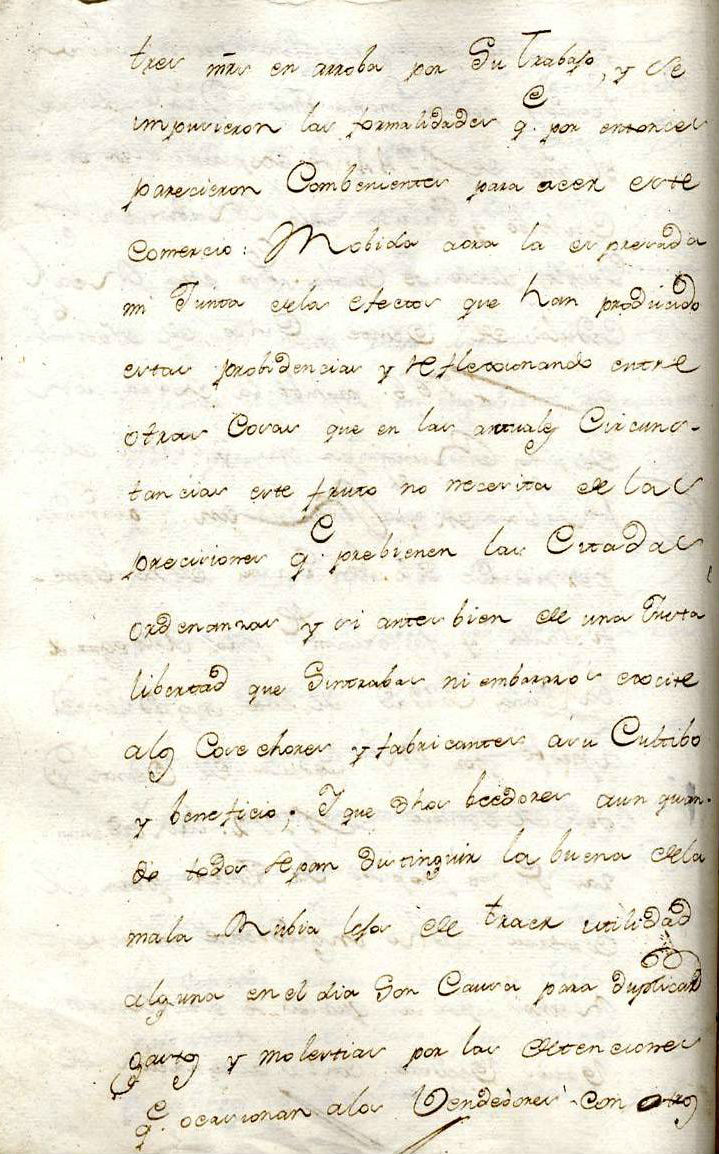 tres mrs en arroba por Su Trabajo, y se
impusieron las formalidades q.e por entonces
parecieron Combenientes para acer este
Comercio: Mobida aora la espresada
mi Junta de los efectos que han producido
estas probidencias y refleccionando entre
otras Cosas que en las actuales Circuns-
tancias este fruto no necesita de las
precisiones q.e prebienen las Citadas
ordenanzas y si antes bien de una Justa
libertad que Sintrabas ni embarazos escite
alos Cosecheros y fabricantes asu Cultibo
y beneficio; Y que dhos beedores aun quan-
do todos sepan Distinguir la buena dela
mala Rubia lejos de traer utilidad
alguna en el dia Son Causa para duplicar
gastos y molestias por las detenciones
q.e ocasionan alos Vendedores con otros